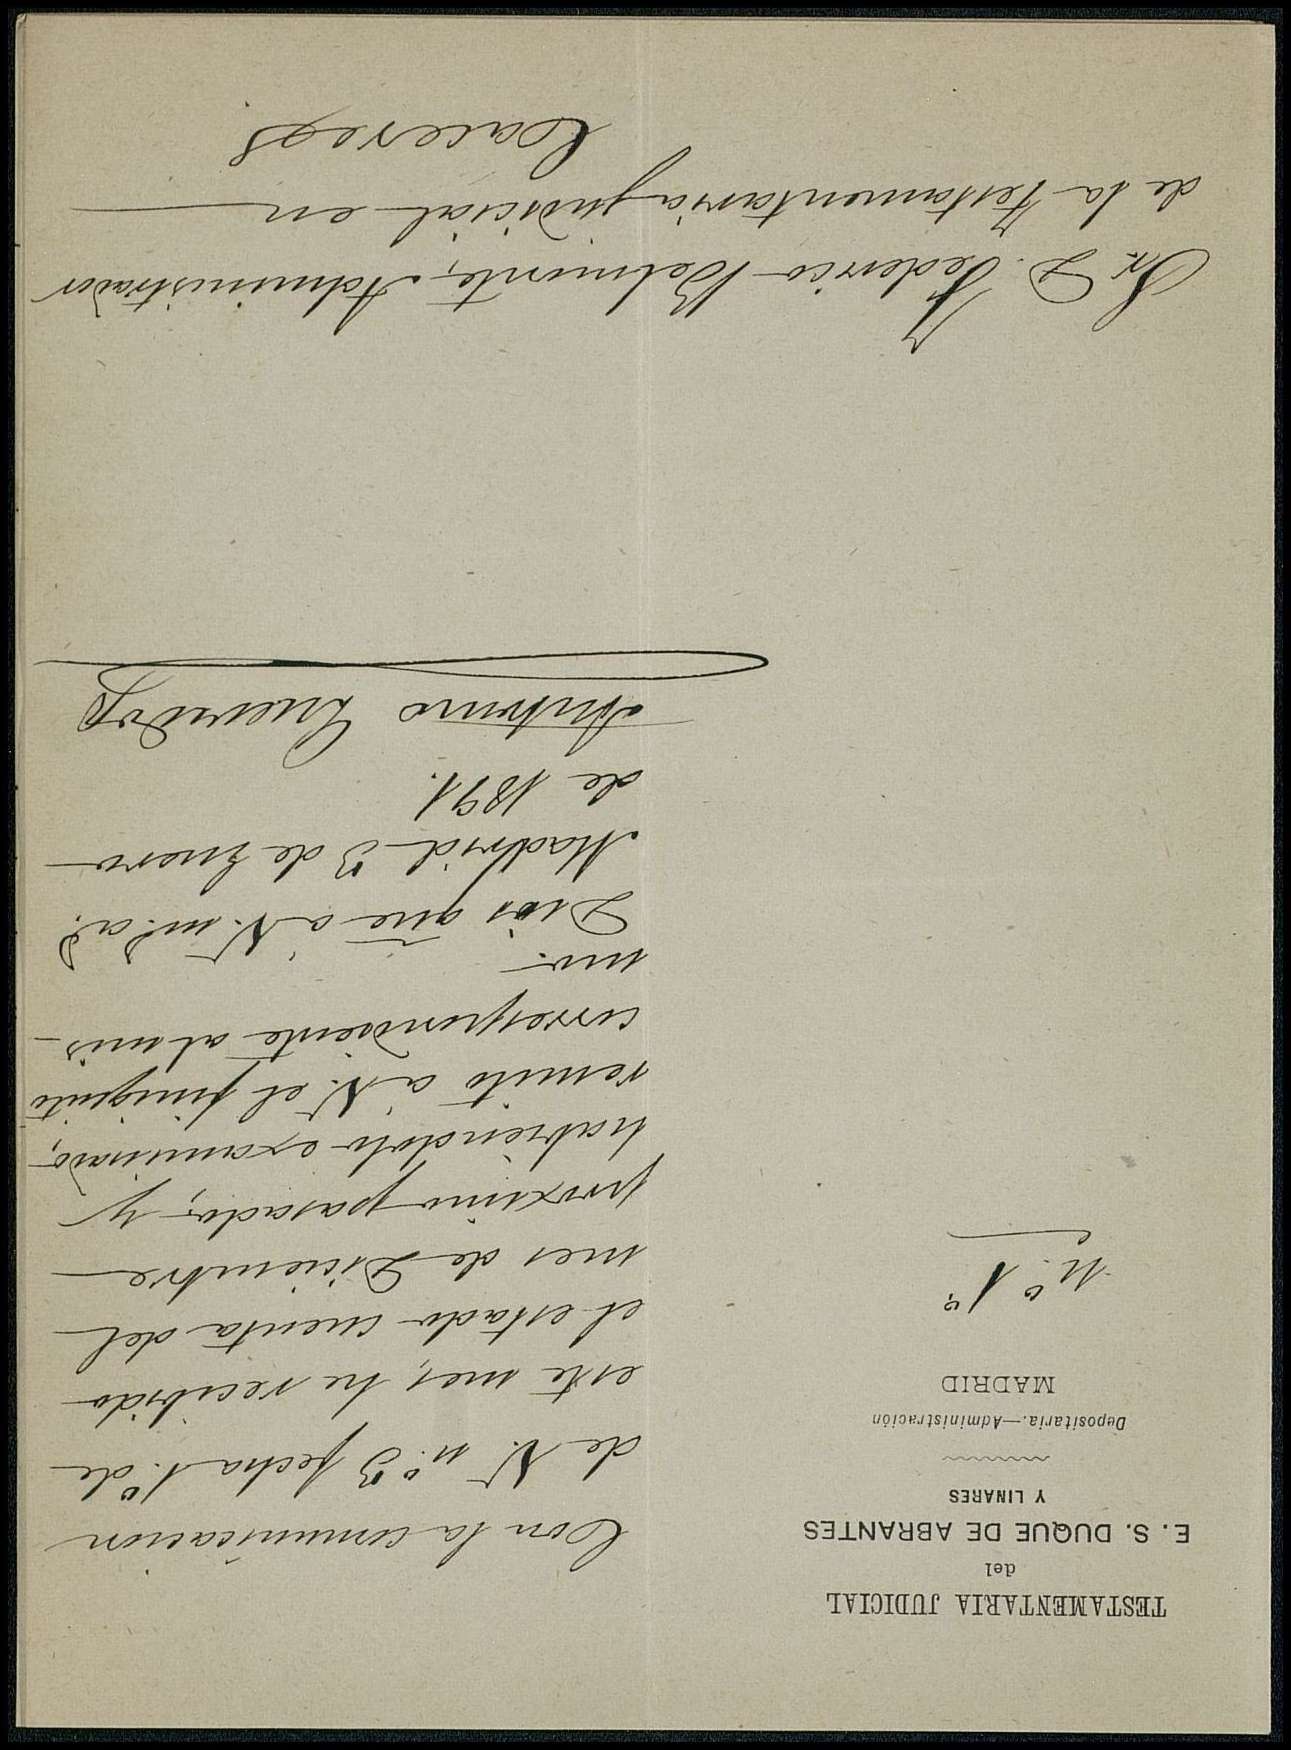 TESTAMENTARIA JUDICIAL
del
E. S. DUQUE DE ABRANTES
Y LINARES
Depositaria.—Administración
MADRID
n.º 1º
Con la comunicacion
de V. n.º 3 fecha 1.º de
este mes, he recibido
el estado cuenta del
mes de Diciembre
próximo pasado, y
habiendolo examinado,
remito á V. el finiquito
correspondiente al mis-
mo.
Dios gue á V. m.s a.s
Madrid 3 de Enero
de 1891.
Antonio Quevedo
Sr. D. Federico Belmonte, Administrador
de la Testamentaria judicial en
Caceres